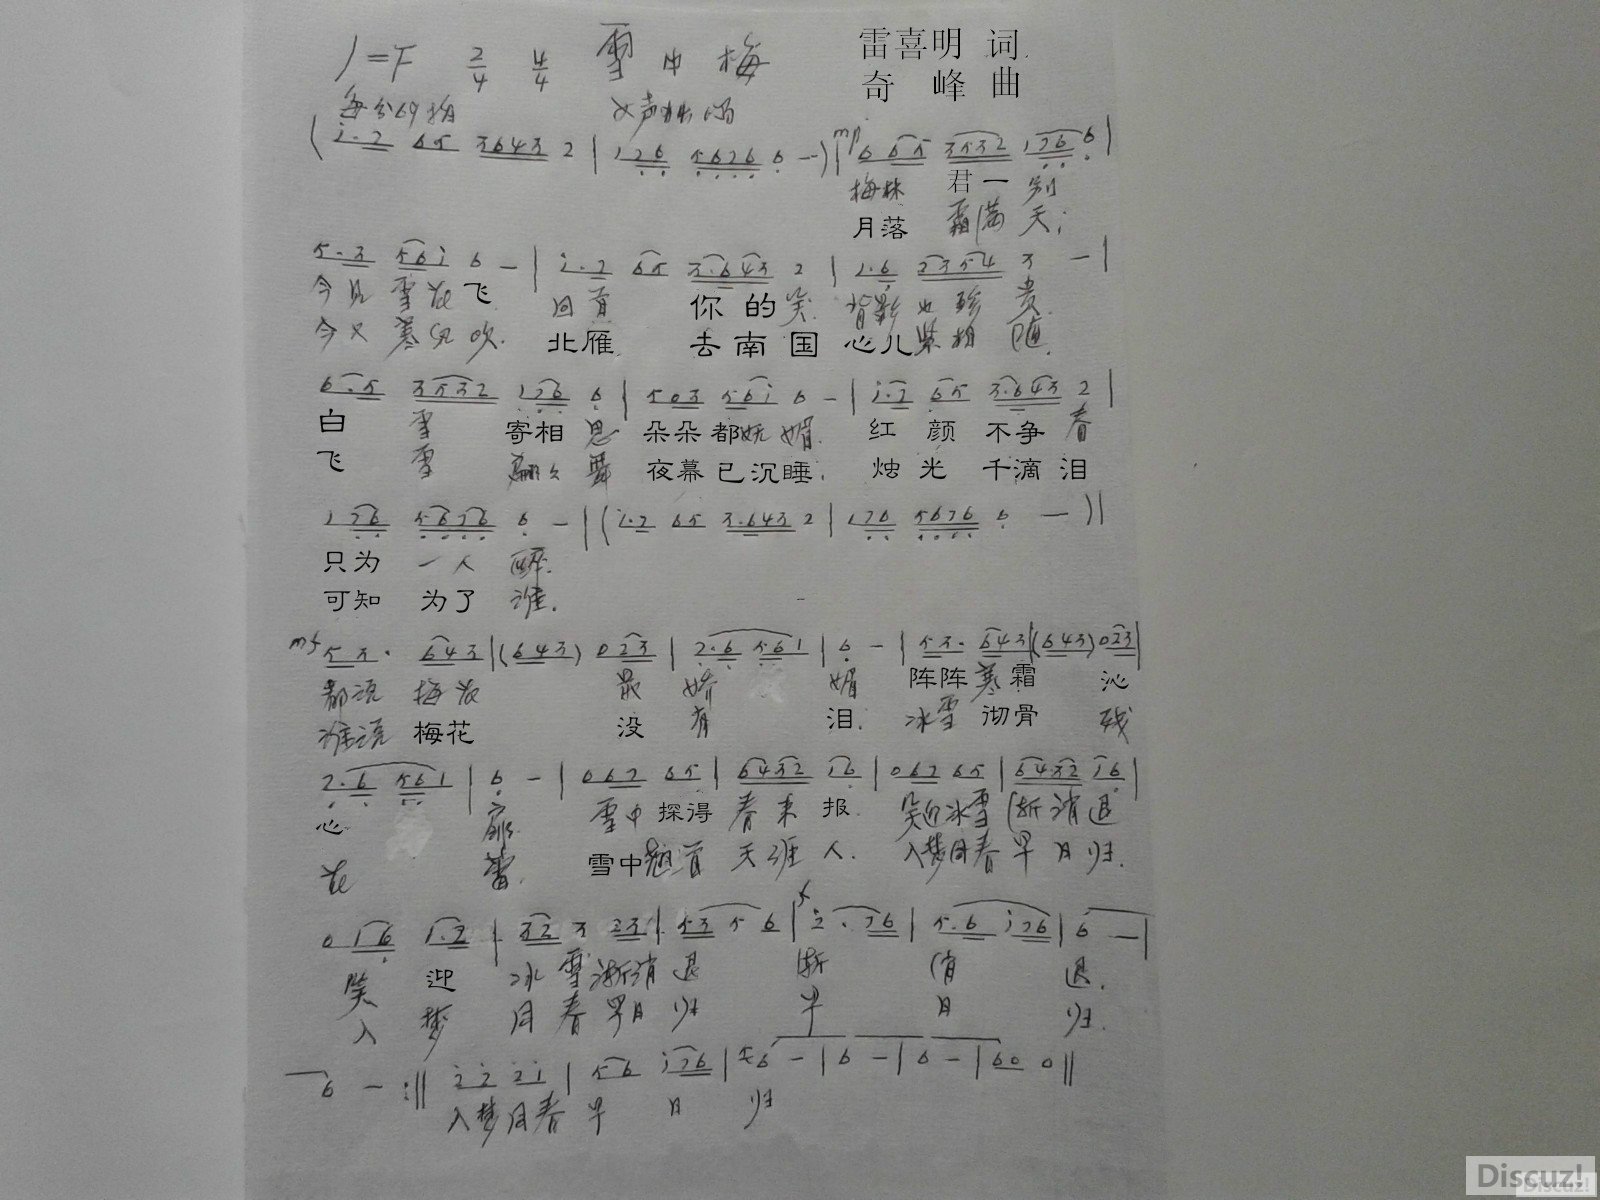 1=F 2/4 4/4 雪中梅 雷喜明 词
奇峰 曲
每分 女声独唱
(i·2 65 3643 2 | 176 5676 6 —) | mp 6 65 3532 176 6 |
梅林 君一别
月落 霜满天;
5·3 56i 6 — | i·2 65 3·643 2 | 1·6 2354 3 — |
今见雪花飞 回首 你的笑 背影也珍贵
今又寒风吹. 北雁 去南国 心儿紧相随.
6·5 3532 176 6 | 503 56i 6 — | i·2 65 3·643 2 |
白雪 寄相思 朵朵都妩媚. 红颜不争春
飞雪 翩翩舞 夜幕已沉睡. 烛光千滴泪
176 5676 6 — | (i·2 65 3·643 2 | 176 5676 6 — ) |
只为一人醉.
可知为了谁.
mf 53· 643 | (643) 023 | 2·6 561 | 6 — | 53· 643 | (643) 023 |
都说梅花 最娇媚 阵阵寒霜 沁
谁说梅花 没有泪. 冰雪彻骨 残
2·6 561 | 6 — | 062 65 | 6432 i6 | 062 65 | 6432 i6 |
心扉. 雪中探得春来报. 笑迎冰雪渐消退
花蕾. 雪中 天涯人. 入梦回春早日归.
0 16 1·2 | 32 3 23 | 53 5 6 | f 2·76 | 5·6 i76 | 6 — |
笑迎冰雪渐消退 渐消退.
入梦回春早日归 早日归.
6 — :|| 22 2i | 56 i76 | 56 — | 6 — | 6 — | 60 0 ||
入梦回春早日归
Discuz!